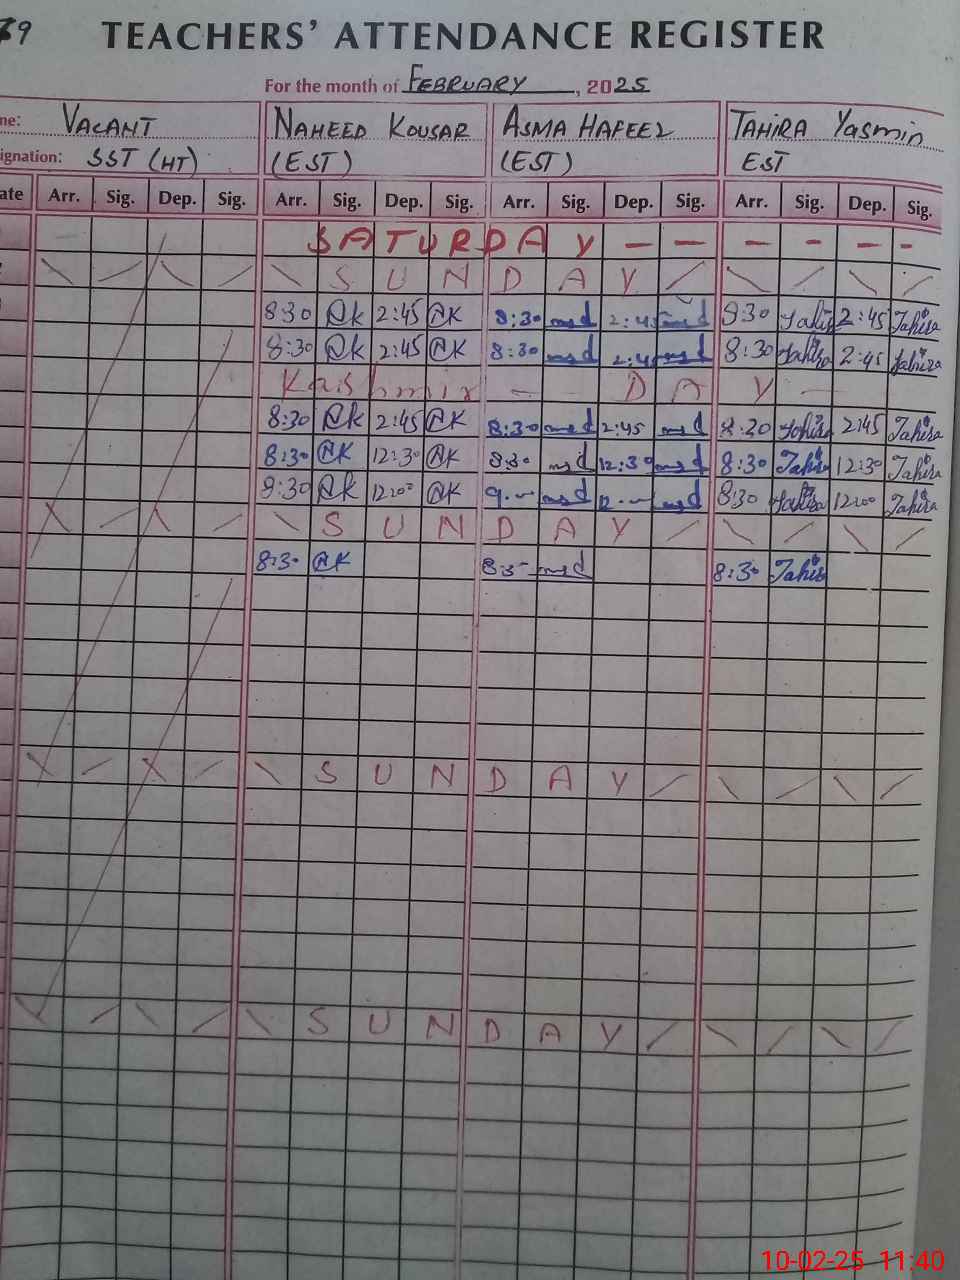 79 TEACHERS' ATTENDANCE REGISTER
For the month of FEBRUARY, 2025
me: VACANT NAHEED KOUSAR ASMA HAFEEZ TAHIRA Yasmin
ignation: SST (HT) (EST) (EST) EST
ate Arr. Sig. Dep. Sig. Arr. Sig. Dep. Sig. Arr. Sig. Dep. Sig. Arr. Sig. Dep. Sig.
SATURDAY - - - - - -
SUNDAY
8:30 2:45 8:30 2:45 8:30 Tahira 2:45 Tahira
8:30 2:45 8:30 2:45 8:30 Tahira 2:45 Tahira
Kashmir - DAY -
8:30 2:45 8:30 2:45 8:30 Tahira 2:45 Tahira
8:30 12:30 8:30 12:30 8:30 Tahira 12:30 Tahira
8:30 12:00 8:30 Tahira 12:00 Tahira
SUNDAY
8:30 8:30 Tahira
SUNDAY
SUNDAY
10-02-25 11:40